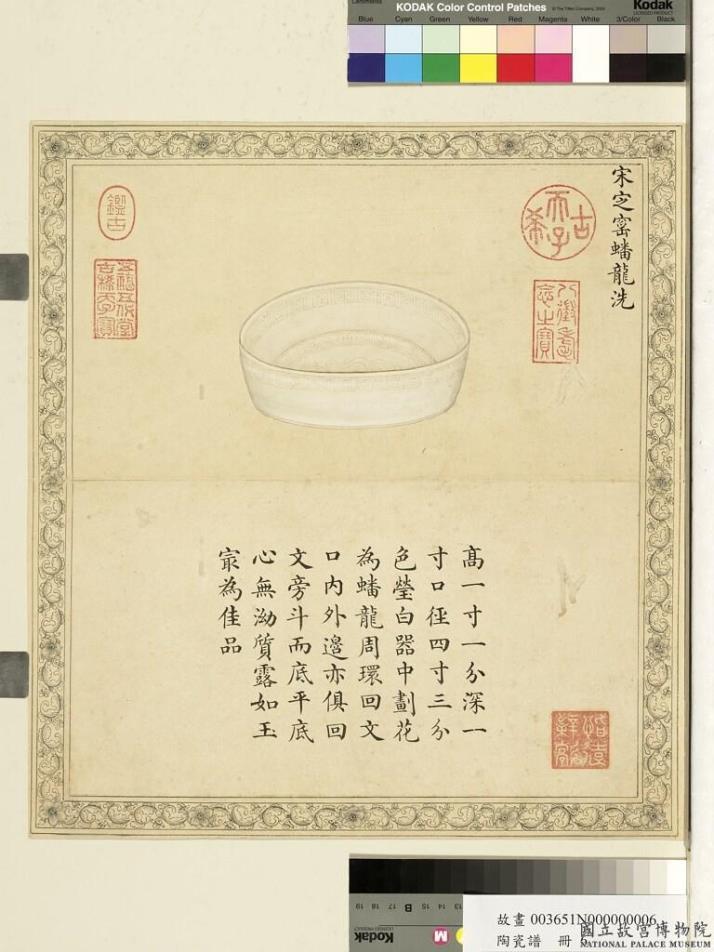 KODAK Color Control Patches
© The Tiffen Company, 2000
Kodak
LICENSED PRODUCT
Blue Cyan Green Yellow Red Magenta White 3/Color Black
宋定窑蟠龍洗
古希天子
八徵耄念之寶
鑑古
五福五代堂古稀天子寶
高一寸一分深一
寸口徑四寸三分
色瑩白器中劃花
為蟠龍周環回文
口內外邊亦俱回
文旁斗而底平底
心無泑質露如玉
㝡為佳品
19 18 17 16 15 B 14 13
Kodak
M
故畫 003651N000000006
陶瓷譜 冊
國立故宮博物院
NATIONAL PALACE MUSEUM